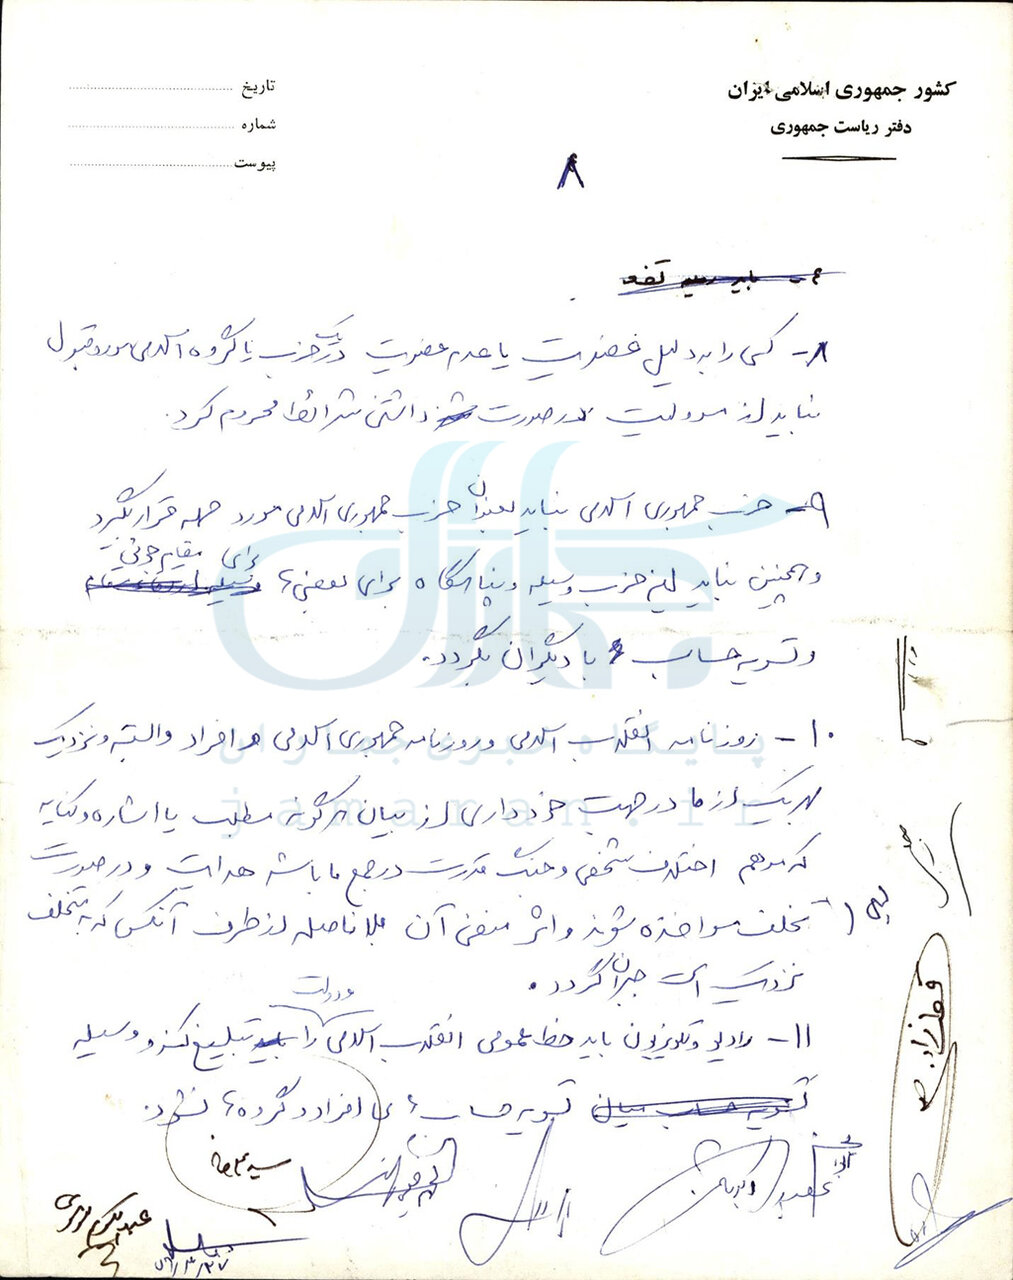 کشور جمهوری اسلامی ایران
دفتر ریاست جمهوری
تاریخ
شماره
پیوست
۸
۸- کسی را به دلیل عضویت یا عدم عضویت در یک حزب یا گروه اسلامی مورد قبول
نباید از مسولیت در صورت داشتن شرائط محروم کرد.
۹- حزب جمهوری اسلامی نباید بعنوان حزب جمهوری اسلامی مورد حمله قرار بگیرد
و همچنین نباید این حزب وسیله و پناهگاه برای بعضی‌ها برای مقام جوئی
و تسویه حساب با دیگران بگردد.
۱۰- روزنامه انقلاب اسلامی و روزنامه جمهوری اسلامی و افراد وابسته و نزدیک
بهریک از ما در جهت خودداری از بیان هرگونه مطلب یا اشاره و کنایه
که موهم اختلاف شخصی و جنگ قدرت در جمع ما باشد هدایت و در صورت
تخلف مواخذه شوند و اثر منفی آن بلافاصله از طرف آنکس که به متخلف
نزدیک است جبران گردد.
۱۱- رادیو و تلویزیون باید خط عمومی انقلاب اسلامی و دولت را تبلیغ کند و وسیله
تسویه حساب‌های افراد و گروه‌ها نشود.
قطب‌زاده
سید علی خامنه
عبدالکریم موسوی
پایگاه خبری جماران
jamaran.ir